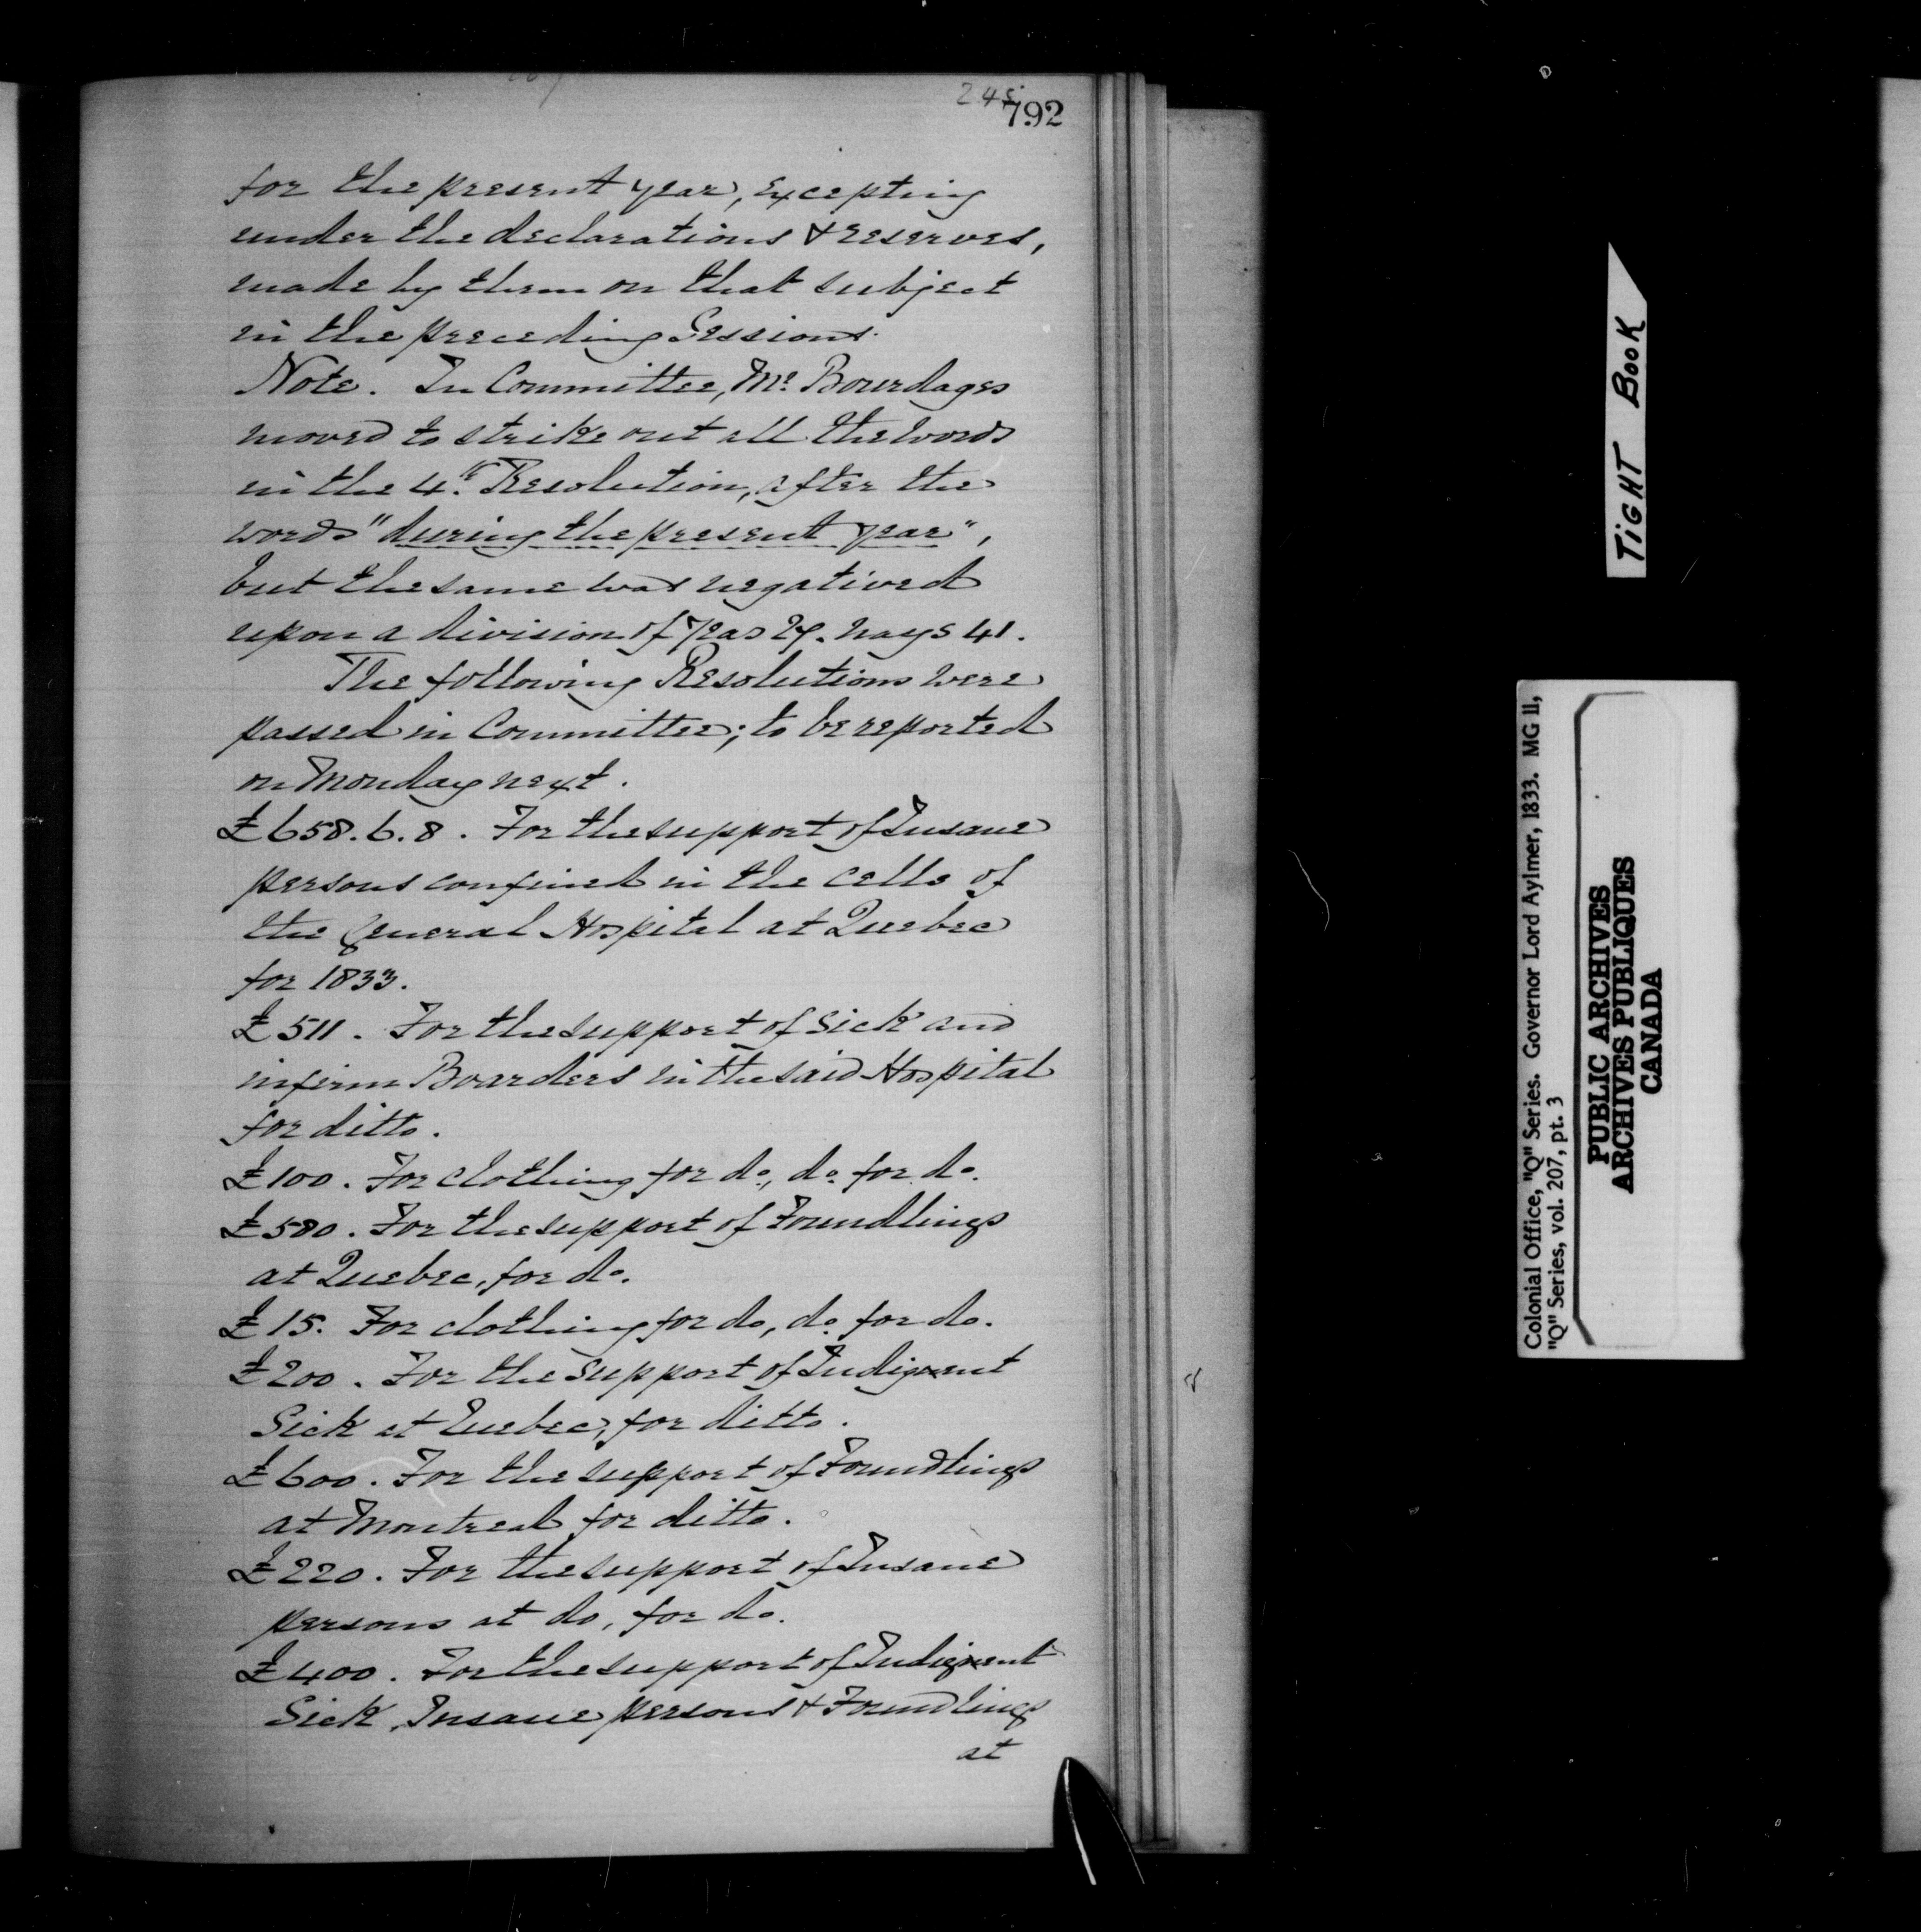 245
792
for the present year, excepting
under the declarations & reserves,
made by them on that subject
in the preceding Sessions.
Note. In Committee, Mr. Bourdages
moved to strike out all the words
in the 4th Resolution, after the
words "during the present year",
but the same was negatived
upon a division of yeas nays 41.
The following Resolutions were
passed in Committee; to be reported
on Monday next.
£658.6.8. For the support of Insane
persons confined in the cells of
the General Hospital at Quebec
for 1833.
£511. For the support of Sick and
infirm Boarders in the said Hospital
for ditto.
£100. For clothing for do., do. for do.
£580. For the support of Foundlings
at Quebec, for do.
£15. For clothing for do, do. for do.
£200. For the support of Indigent
Sick at Quebec, for ditto.
£600. For the support of Foundlings
at Montreal for ditto.
£220. For the support of Insane
persons at do, for do.
£400. For the support of Indigent
Sick, Insane persons & Foundlings
at
TIGHT BOOK
Colonial Office, "Q" Series. Governor Lord Aylmer, 1833. MG 11,
"Q" Series, vol. 207, pt. 3
PUBLIC ARCHIVES
ARCHIVES PUBLIQUES
CANADA